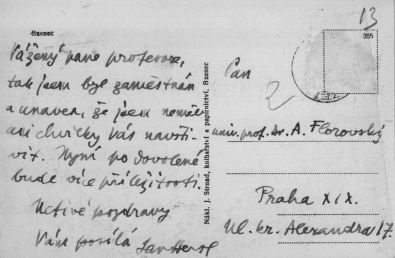 13
Szenec
355
Vážený pane profesore,
tak jsem byl zaměstnán
a unaven, že jsem neměl
ani chvilky Vás navští-
vit. Nyní po dovolené
bude více příležitosti.
Uctivé pozdravy
Vám posílá Jan
Nákl. J. Strnad, knihařství a papírnictví, Szenec
Pan
2
univ. prof. Dr. A. Florovský
Praha XIX.
Ul. kr. Alexandra 17.